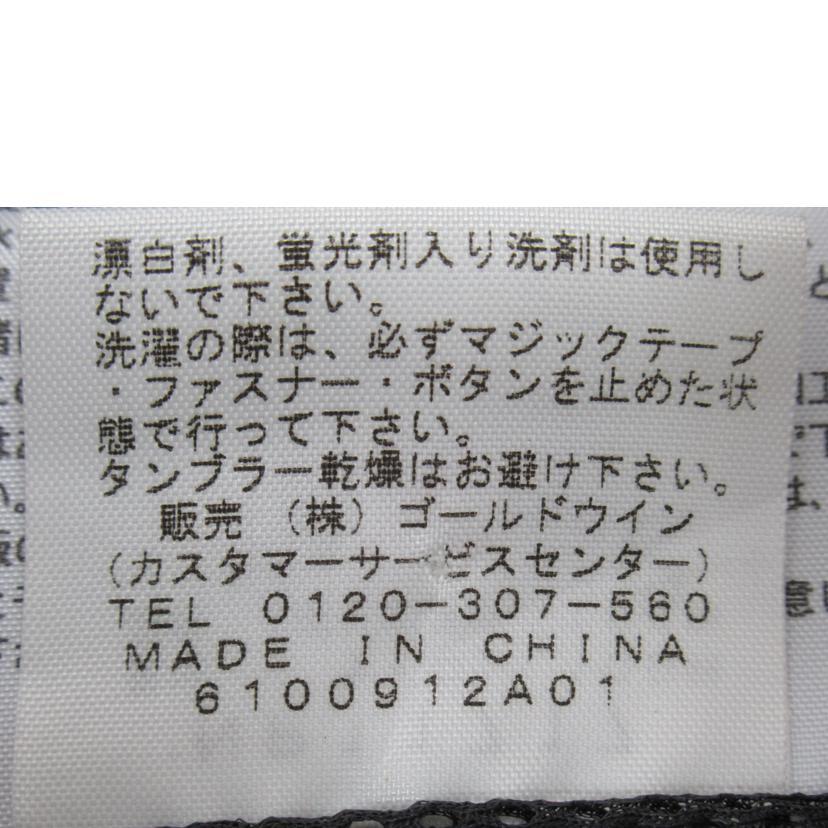 漂白剤、蛍光剤入り洗剤は使用し
ないで下さい。
洗濯の際は、必ずマジックテープ
・ファスナー・ボタンを止めた状
態で行って下さい。
タンブラー乾燥はお避け下さい。
販売 (株) ゴールドウイン
(カスタマーサービスセンター)
TEL 0120-307-560
MADE IN CHINA
6100912A01